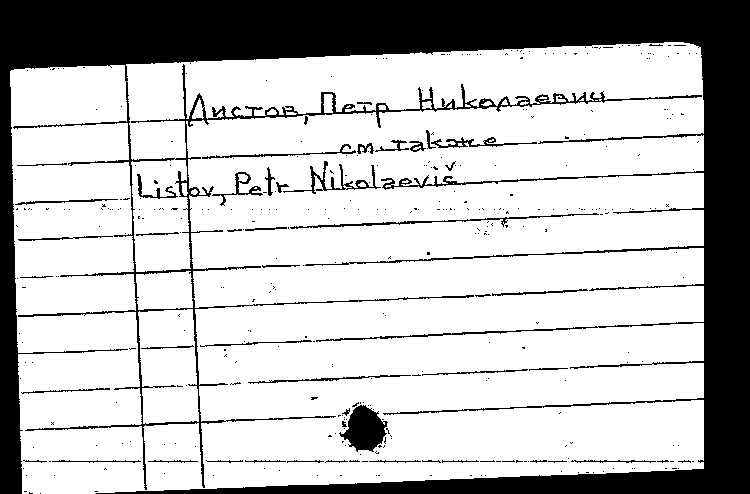 Листов, Петр Николаевич
см. также
Listov, Petr Nikolaevič